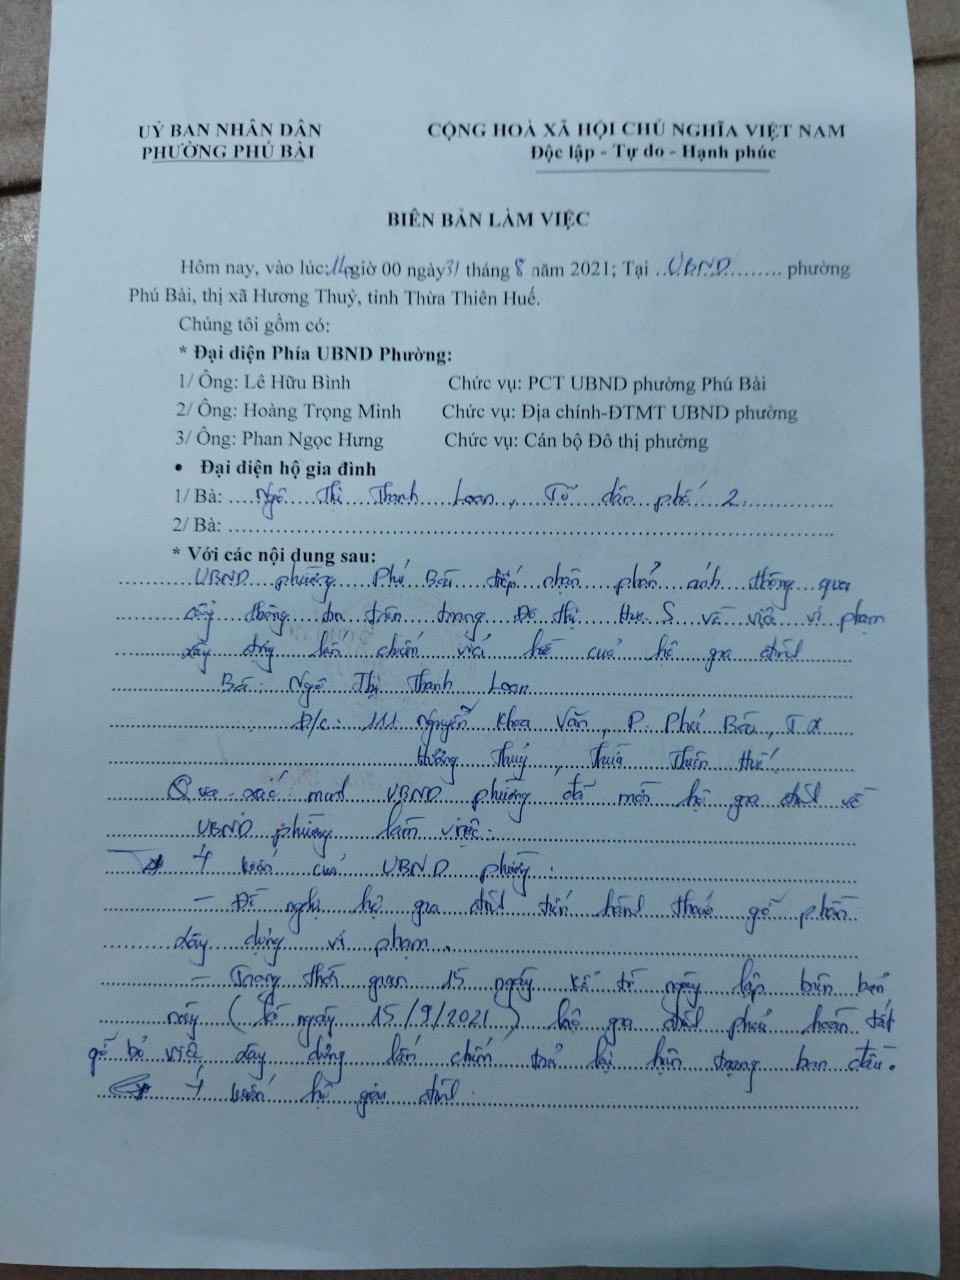 UỶ BAN NHÂN DÂN
PHƯỜNG PHÚ BÀI
CỘNG HOÀ XÃ HỘI CHỦ NGHĨA VIỆT NAM
Độc lập - Tự do - Hạnh phúc
BIÊN BẢN LÀM VIỆC
Hôm nay, vào lúc: 14 giờ 00 ngày 31 tháng 8 năm 2021; Tại ..UBND........ phường
Phú Bài, thị xã Hương Thuỷ, tỉnh Thừa Thiên Huế.
Chúng tôi gồm có:
* Đại diện Phía UBND Phường:
1/ Ông: Lê Hữu Bình Chức vụ: PCT UBND phường Phú Bài
2/ Ông: Hoàng Trọng Minh Chức vụ: Địa chính-ĐTMT UBND phường
3/ Ông: Phan Ngọc Hưng Chức vụ: Cán bộ Đô thị phường
• Đại diện hộ gia đình
1/ Bà: Ngô Thị Thanh Loan, Tổ dân phố 2
2/ Bà:
* Với các nội dung sau:
UBND phường Phú Bài tiếp nhận phản ánh thông qua
cổng thông tin trên trang Đô thị Hue S về việc vi phạm
xây dựng lấn chiếm vỉa hè của hộ gia đình
Bà: Ngô Thị Thanh Loan
Đ/c: 111 Nguyễn Khoa Văn, P. Phú Bài, TX
Hương Thuỷ, Thừa Thiên Huế.
Qua xác minh UBND phường đã mời hộ gia đình về
UBND phường làm việc.
* Ý kiến của UBND phường:
- Đề nghị hộ gia đình tiến hành tháo gỡ phần
xây dựng vi phạm.
- Trong thời gian 15 ngày kể từ ngày lập biên bản
này ( ngày 15/9/2021) hộ gia đình phải hoàn tất
gỡ bỏ việc xây dựng lấn chiếm trả lại hiện trạng ban đầu.
* Ý kiến hộ gia đình.